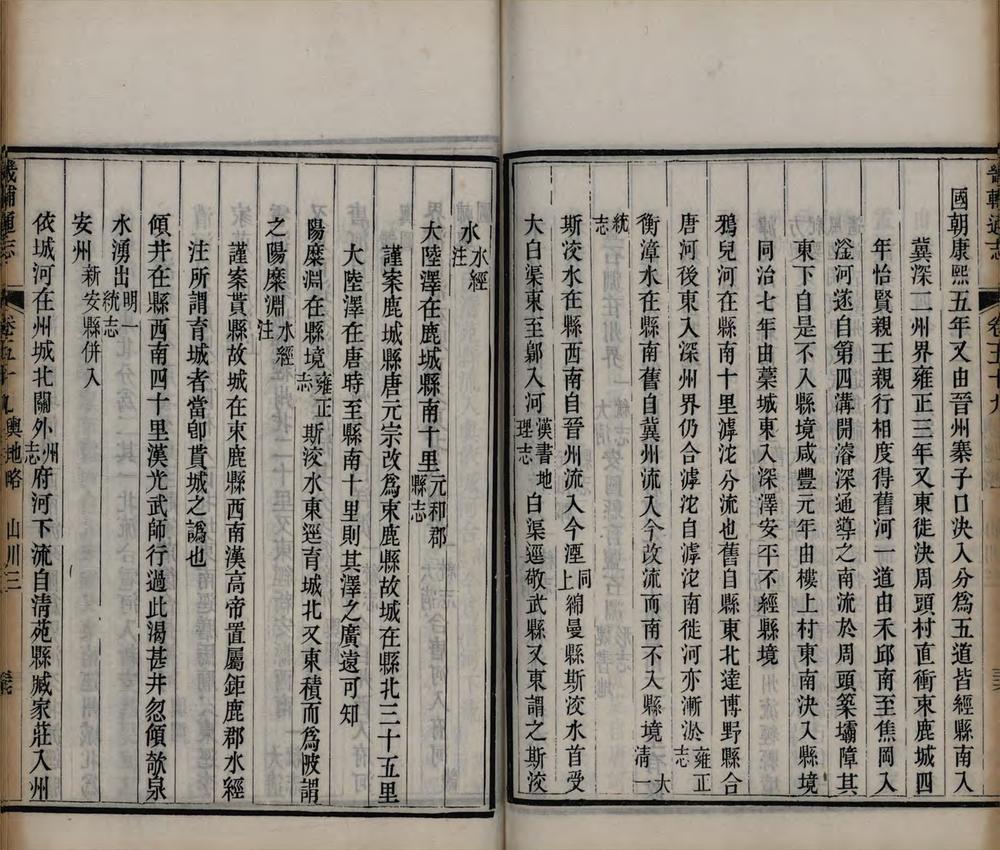 國朝康熙五年又由晉州寨子口決入分爲五道皆經縣南入
冀深二州界雍正三年又東徙決周頭村直衝束鹿城四
年怡賢親王親行相度得舊河一道由禾邱南至焦岡入
滏河遂自第四溝開濬深通導之南流於周頭築壩障其
東下自是不入縣境咸豐元年由樓上村東南決入縣境
同治七年由藁城東入深澤安平不經縣境
鴉兒河在縣南十里滹沱分流也舊自縣東北達博野縣合
唐河後東入深州界仍合滹沱自滹沱南徙河亦漸淤雍正志
衡漳水在縣南舊自冀州流入今改流而南不入縣境大清一
統志
斯洨水在縣西南自晉州流入今湮同上綿曼縣斯洨水首受
大白渠東至鄡入河漢書地理志白渠逕敬武縣又東謂之斯洨
水水經注
大陸澤在鹿城縣南十里元和郡縣志
謹案鹿城縣唐元宗改爲束鹿縣故城在縣北三十五里
大陸澤在唐時至縣南十里則其澤之廣遠可知
陽糜淵在縣境雍正志斯洨水東逕育城北又東積而爲陂謂
之陽糜淵水經注
謹案貰縣故城在束鹿縣西南漢高帝置屬鉅鹿郡水經
注所謂育城者當卽貰城之譌也
傾井在縣西南四十里漢光武師行過此渴甚井忽傾欹泉
水湧出明一統志
安州新安縣併入
依城河在州城北關外州志府河下流自淸苑縣臧家莊入州
畿輔通志
輿地略
山川三